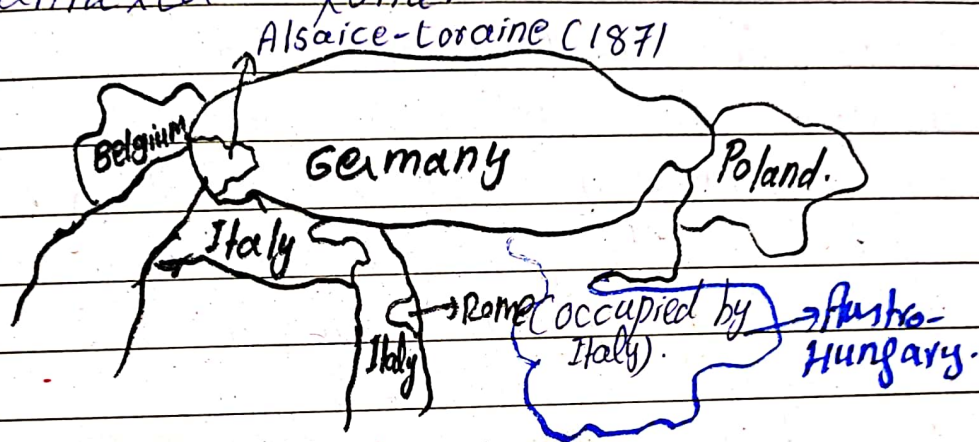 Alsaice-Loraine (1871
Belgium
Germany
Poland.
Italy
Rome (occupied by
Italy).
Austro-
Hungary.
Italy